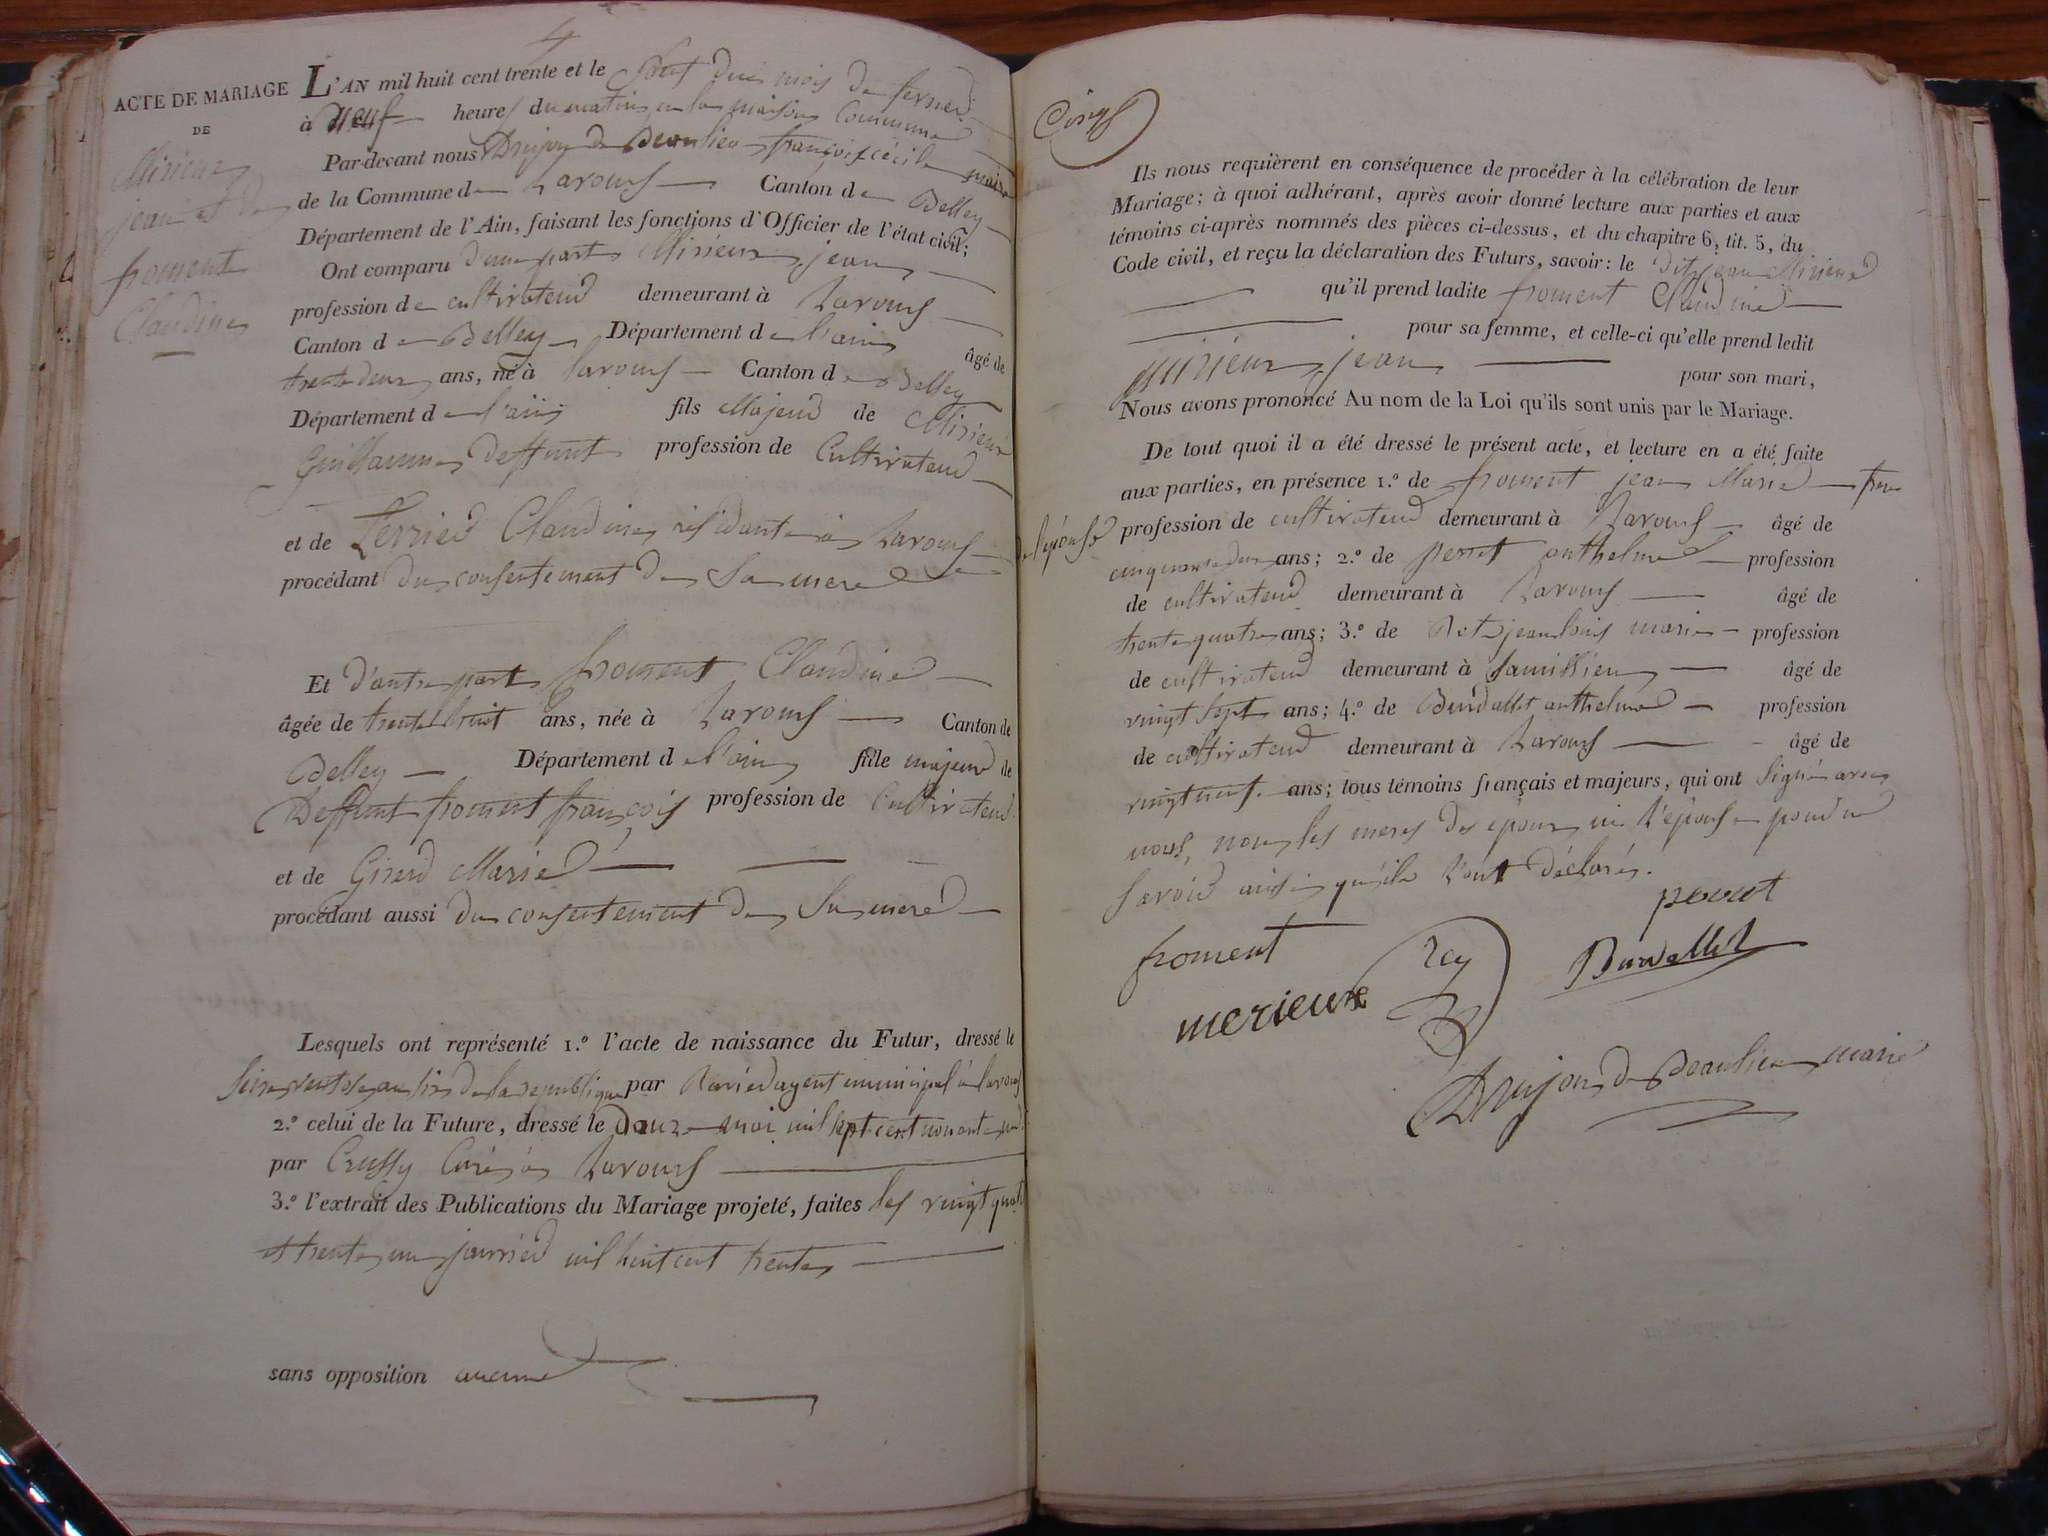 4
ACTE DE MARIAGE
DE
Mirieur
jean et de
froment
Claudine
L'AN mil huit cent trente et le Sept du mois de fevrier
à neuf heures du matin en la maison Commune
Par-devant nous Drujon de Beaulieu françois cécile maire
de la Commune de Parves Canton de Belley
Département de l'Ain, faisant les fonctions d'Officier de l'état civil;
Ont comparu d'une part Mirieur jean
profession de cultivateur demeurant à Parves
Canton de Belley Département de l'ain âgé de
trente deux ans, né à parves Canton de Belley
Département de l'ain fils Majeur de Mirieur
Guillaume deffunt profession de Cultivateur
et de Perrier Claudine résidante à Parves
procédant du consentement de Sa mere
Et d'autre part froment Claudine
âgée de trente huit ans, née à Parves Canton de
Belley Département de l'ain fille majeure de
Deffunt froment françois profession de Cultivateur
et de Girerd Marie
procédant aussi du consentement de Sa mere
Lesquels ont représenté 1.º l'acte de naissance du Futur, dressé le
Seize ventose an six de la republique par agent municipal à parves
2.º celui de la Future, dressé le Douze mai mil sept cent nonante
par Crussy Curé à Parves
3.º l'extrait des Publications du Mariage projeté, faites les vingt quatre
et trente un janvier mil huit cent trente
sans opposition aucune
Cinq
Ils nous requièrent en conséquence de procéder à la célébration de leur
Mariage; à quoi adhérant, après avoir donné lecture aux parties et aux
témoins ci-après nommés des pièces ci-dessus, et du chapitre 6, tit. 5, du
Code civil, et reçu la déclaration des Futurs, savoir: le dit jean Mirieur
qu'il prend ladite froment Claudine
pour sa femme, et celle-ci qu'elle prend ledit
Mirieur jean pour son mari,
Nous avons prononcé Au nom de la Loi qu'ils sont unis par le Mariage.
De tout quoi il a été dressé le présent acte, et lecture en a été faite
aux parties, en présence 1.º de froment jean Marie frere
de l'épouse profession de cultivateur demeurant à Parves âgé de
cinquante deux ans; 2.º de perret anthelme profession
de cultivateur demeurant à Parves âgé de
trente quatre ans; 3.º de jean louis marie profession
de cultivateur demeurant à âgé de
vingt sept ans; 4.º de Burdallet anthelme profession
de cultivateur demeurant à Parves âgé de
vingt neuf ans; tous témoins français et majeurs, qui ont Signé avec
nous, non les meres des epoux ni l'épouse pour ne
Savoir ainsi qu'ils l'ont déclaré.
perret
froment Rey Burdallet
merieure
Drujon de Beaulieu maire